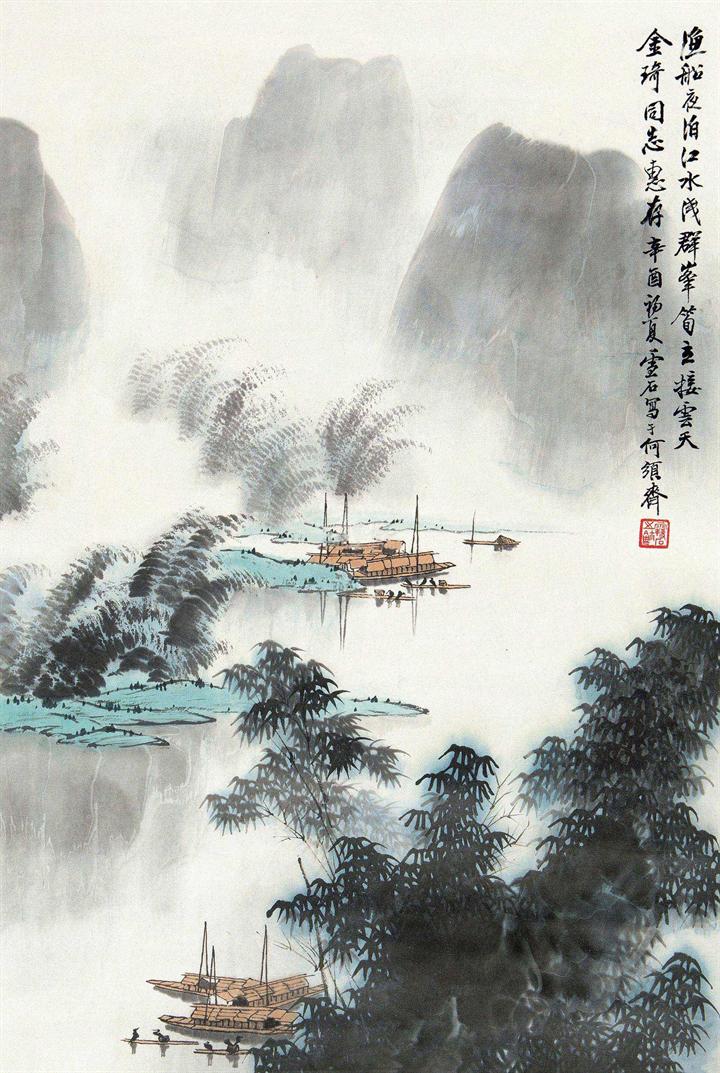 渔船夜泊江水浅群峯笋立接雲天
金琦同志惠存辛酉初夏雲石写于何须斋